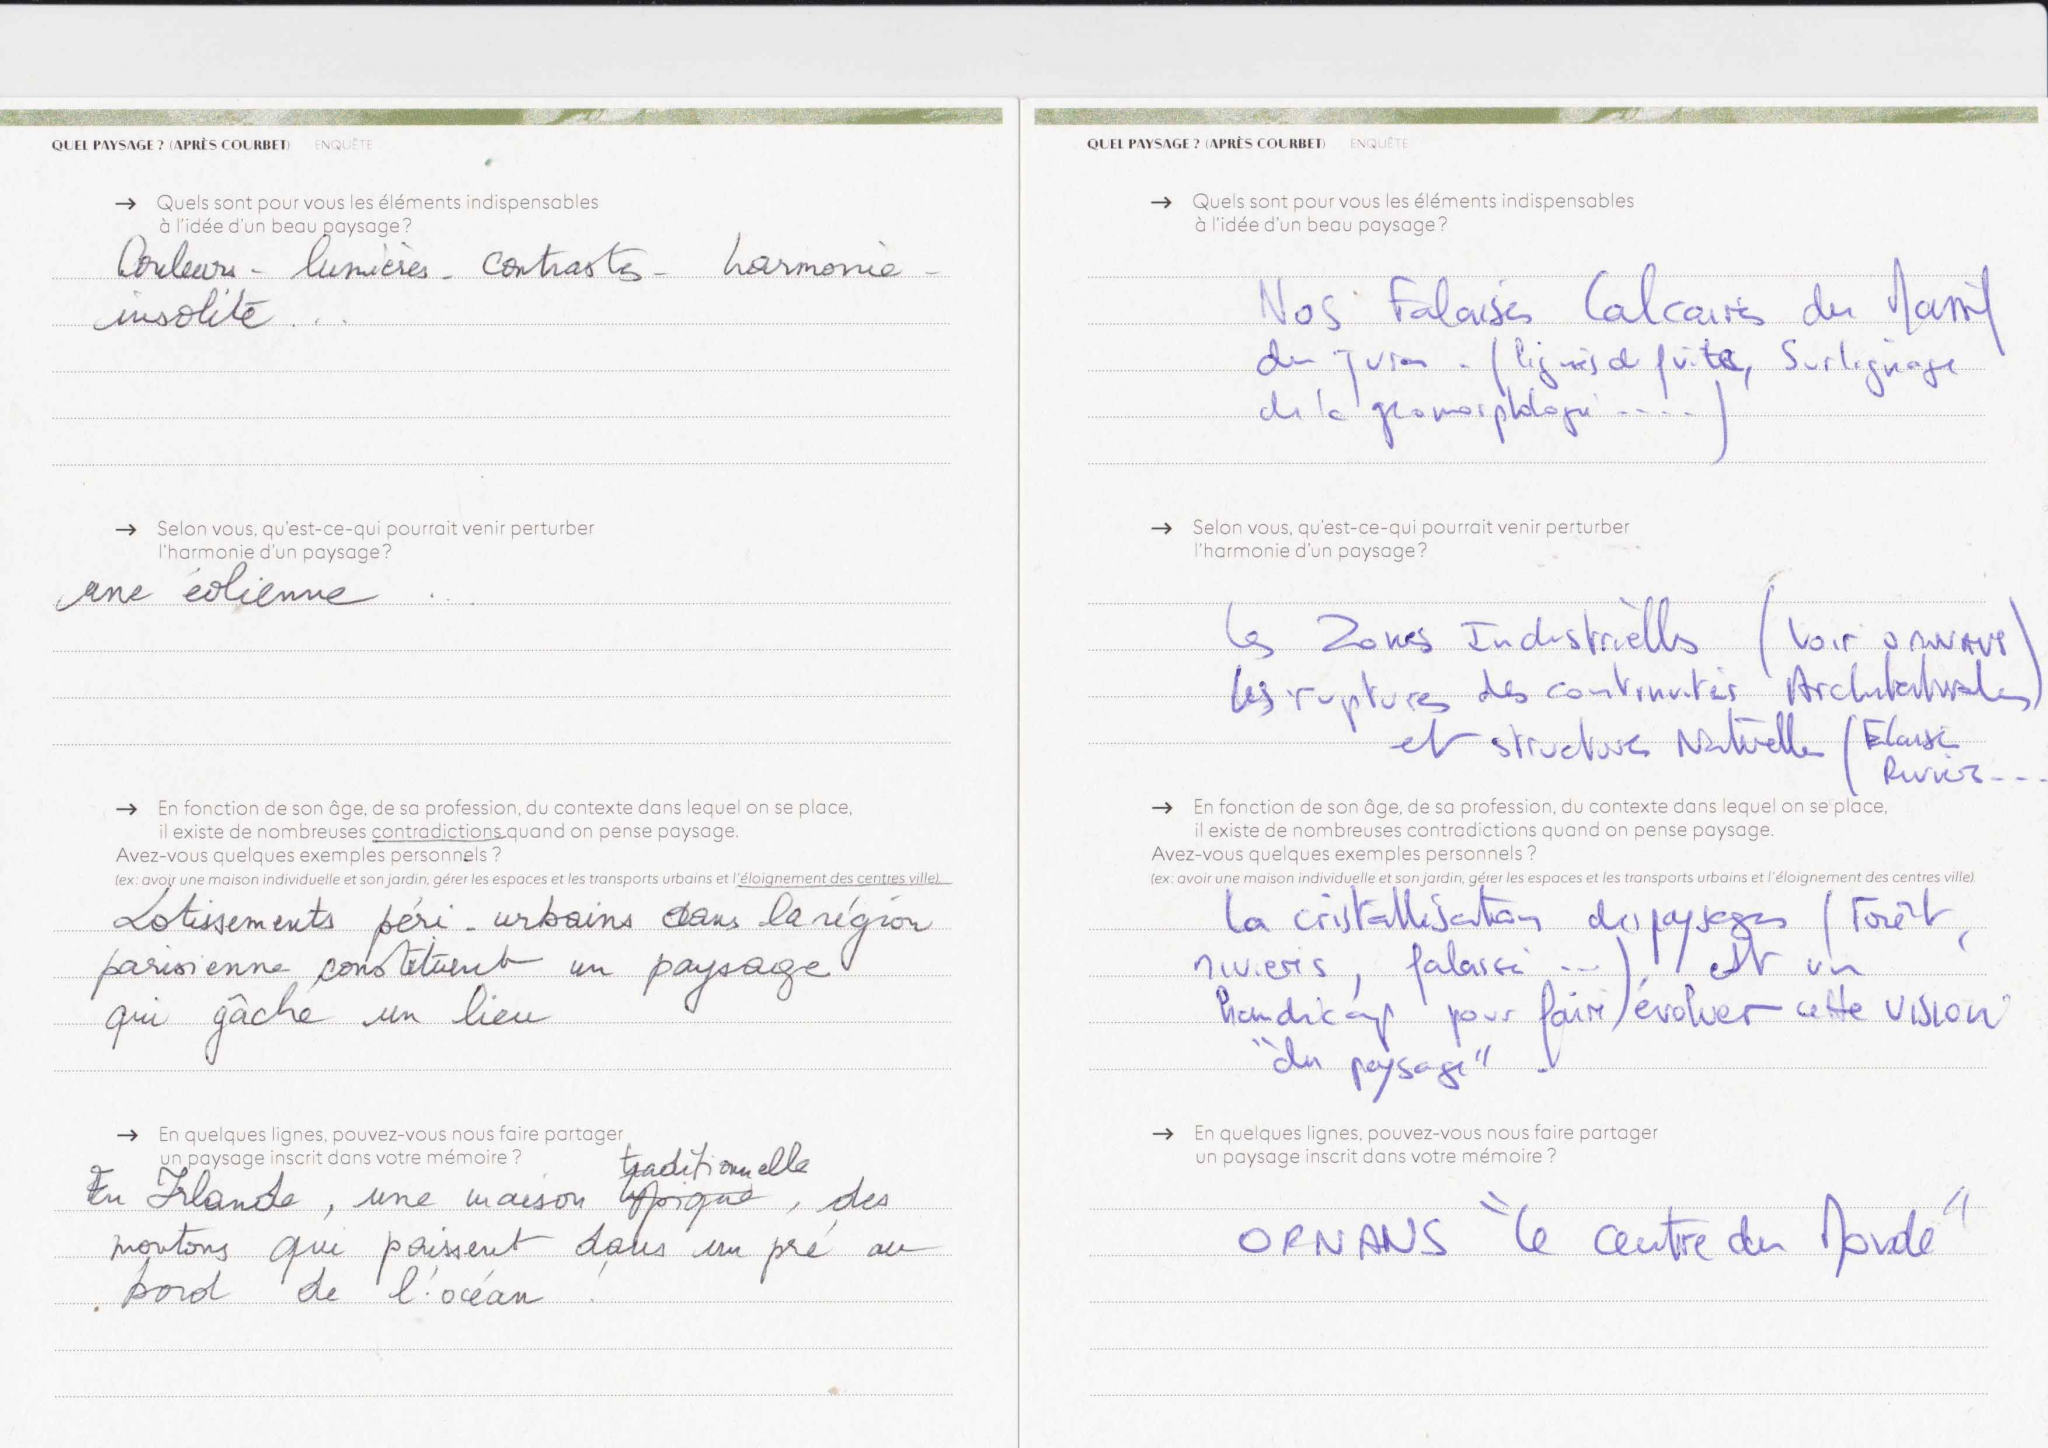 QUEL PAYSAGE ? (APRÈS COURBET) ENQUÊTE
→ Quels sont pour vous les éléments indispensables
à l'idée d'un beau paysage ?
Couleurs - lumières - contrastes - harmonie -
insolite ...
→ Selon vous, qu'est-ce-qui pourrait venir perturber
l'harmonie d'un paysage ?
une éolienne ...
→ En fonction de son âge, de sa profession, du contexte dans lequel on se place,
il existe de nombreuses contradictions quand on pense paysage.
Avez-vous quelques exemples personnels ?
(ex: avoir une maison individuelle et son jardin, gérer les espaces et les transports urbains et l'éloignement des centres ville)
Lotissements péri-urbains dans la région
parisienne constituent un paysage
qui gâche un lieu
→ En quelques lignes, pouvez-vous nous faire partager
un paysage inscrit dans votre mémoire ?
traditionnelle
En Irlande, une maison typique, des
moutons qui paissent dans un pré au
bord de l'océan !
QUEL PAYSAGE ? (APRÈS COURBET) ENQUÊTE
→ Quels sont pour vous les éléments indispensables
à l'idée d'un beau paysage ?
Nos Falaises Calcaires du Massif
du Jura . (lignes de fuite, Surlignage
de la geomorphologie ....)
→ Selon vous, qu'est-ce-qui pourrait venir perturber
l'harmonie d'un paysage ?
les Zones Industrielles (voir ORNANS)
les ruptures des continuités Architecturales
et structures Naturelles (Falaise
Rivière ...
→ En fonction de son âge, de sa profession, du contexte dans lequel on se place,
il existe de nombreuses contradictions quand on pense paysage.
Avez-vous quelques exemples personnels ?
(ex: avoir une maison individuelle et son jardin, gérer les espaces et les transports urbains et l'éloignement des centres ville)
la cristallisation des paysages (Forêt,
rivieres, falaise ...) est un
handicap pour faire évoluer cette VISION
"du paysage" .
→ En quelques lignes, pouvez-vous nous faire partager
un paysage inscrit dans votre mémoire ?
ORNANS "le centre du Monde"